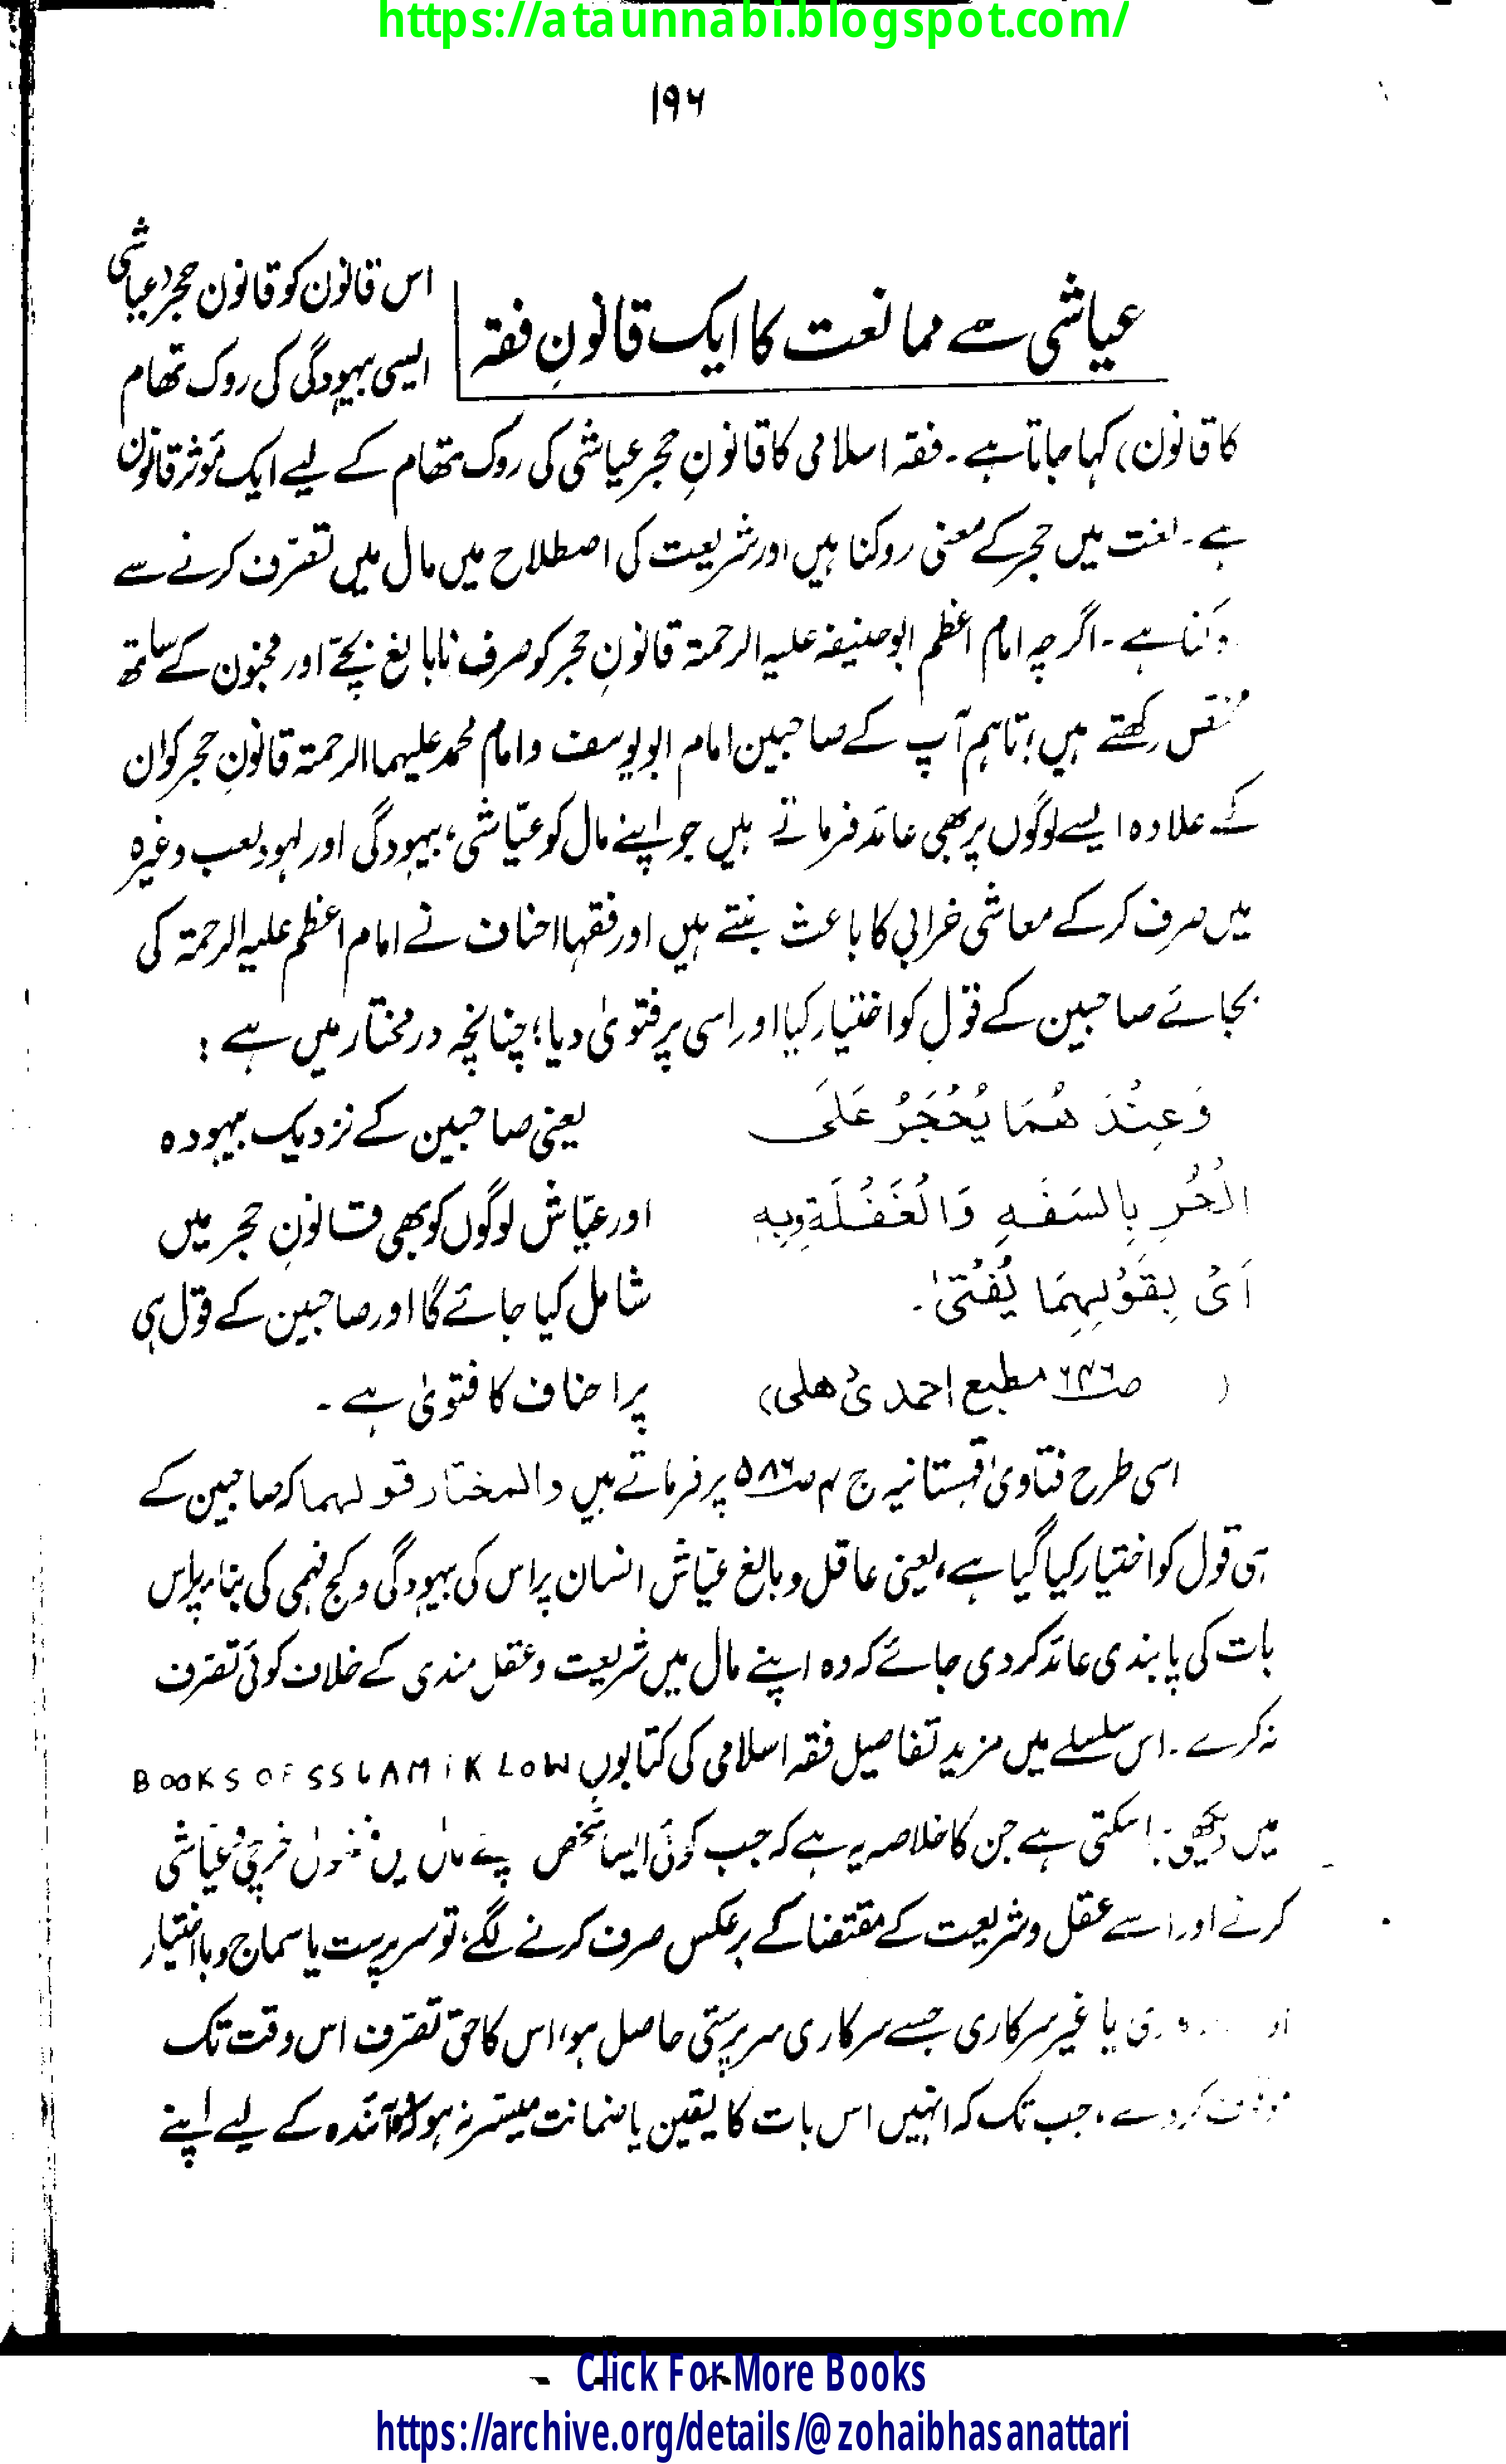 https://ataunnabi.blogspot.com/
۱۹۶
عیاشی سے ممانعت کا ایک قانونِ فقہ
اس قانون کو قانون حجر (عیاشی
ایسی بیہودگی کی روک تھام
کا قانون) کہا جاتا ہے۔ فقہ اسلامی کا قانونِ حجر عیاشی کی روک تھام کے لیے ایک مؤثر قانون
ہے۔ لغت میں حجر کے معنی روکنا ہیں اور شریعت کی اصطلاح میں مال میں تصرّف کرنے سے
ہے۔ اگرچہ امام اعظم ابوحنیفہ علیہ الرحمۃ قانونِ حجر کو صرف نابالغ بچّے اور مجنون کے ساتھ
رکھتے ہیں؛ تاہم آپ کے صاحبین امام ابویوسف و امام محمد علیہما الرحمۃ قانونِ حجر کو ان
کے علاوہ ایسے لوگوں پر بھی عائد فرماتے ہیں جو اپنے مال کو عیّاشی، بیہودگی اور لہو و لعب وغیرہ
میں صرف کرکے معاشی خرابی کا باعث بنتے ہیں اور فقہا احناف نے امام اعظم علیہ الرحمۃ کی
بجائے صاحبین کے قول کو اختیار کیا اور اسی پر فتویٰ دیا؛ چنانچہ درمختار میں ہے :
وَعِنْدَ هُمَا يُحْجَرُ عَلَى
یعنی صاحبین کے نزدیک بیہودہ
الْحُرِ بِالسَفَهِ وَالْغَفْلَةِ وَبِهِ
اور عیّاش لوگوں کو بھی قانونِ حجر میں
اَىْ بِقَوْلِهِمَا يُفْتىٰ۔
شامل کیا جائے گا اور صاحبین کے قول ہی
( ص۶۴۶ مطبع احمدی دھلی)
پر احناف کا فتویٰ ہے۔
اسی طرح فتاویٰ قہستانیہ ج ۴ ص۵۸۶ پر فرماتے ہیں والمختار قولهما کہ صاحبین کے
ہی قول کو اختیار کیا گیا ہے، یعنی عاقل و بالغ عیّاش انسان پر اس کی بیہودگی و کج فہمی کی بناء پر اس
بات کی پابندی عائد کر دی جائے کہ وہ اپنے مال میں شریعت و عقل مندی کے خلاف کوئی تصرّف
نہ کرے۔ اس سلسلے میں مزید تفاصیل فقہ اسلامی کی کتابوں BOOKS OF SSLAMIK LOW
میں دیکھی جاسکتی ہے جن کا خلاصہ یہ ہے کہ جب کوئی ایسا شخص اپنے مال میں فضول خرچی و عیّاشی
کرنے اور اسے عقل و شریعت کے مقتضا کے برعکس صرف کرنے لگے، تو سرپرست یا سماج و بااختیار
یا غیر سرکاری جسے سرکاری سرپرستی حاصل ہو، اس کا حق تصرّف اس وقت تک
کردے، جب تک کہ انہیں اس بات کا یقین یا ضمانت میسّر نہ ہو کہ وہ آئندہ کے لیے اپنے
Click For More Books
https://archive.org/details/@zohaibhasanattari